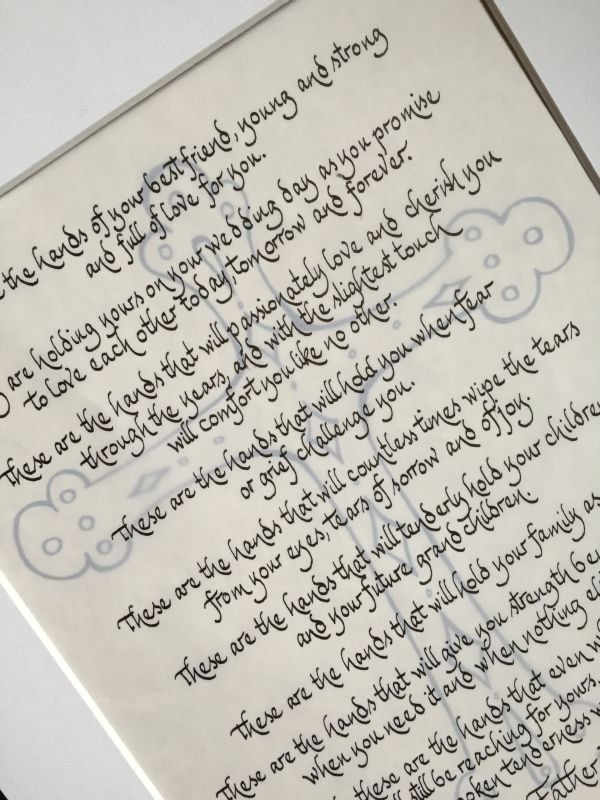 the hands of your best friend, young and strong
and full of love for you.
are holding yours on your wedding day as you promise
to love each other today, tomorrow and forever.
These are the hands that will passionately love and cherish you
through the years, and with the slightest touch
will comfort you like no other.
These are the hands that will hold you when fear
or grief challenge you.
These are the hands that will countless times wipe the tears
from your eyes, tears of sorrow and of joy.
These are the hands that will tenderly hold your children
and your future grandchildren.
These are the hands that will hold your family as
These are the hands that will give you strength
when you need it and when nothing
these are the hands that even
still be reaching for yours,
tenderness
Father